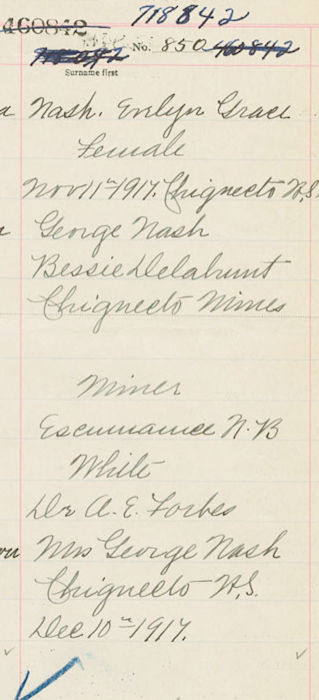 460842 718842
No. 850 460842
Surname first
Nash. Evelyn Grace
Female
Nov 11th 1917. Chignecto N.S.
George Nash
Bessie Delahunt
Chignecto Mines
Miner
Escuminance N.B
White
Dr A. E. Forbes
Mrs George Nash
Chignecto N.S.
Dec 10th 1917.